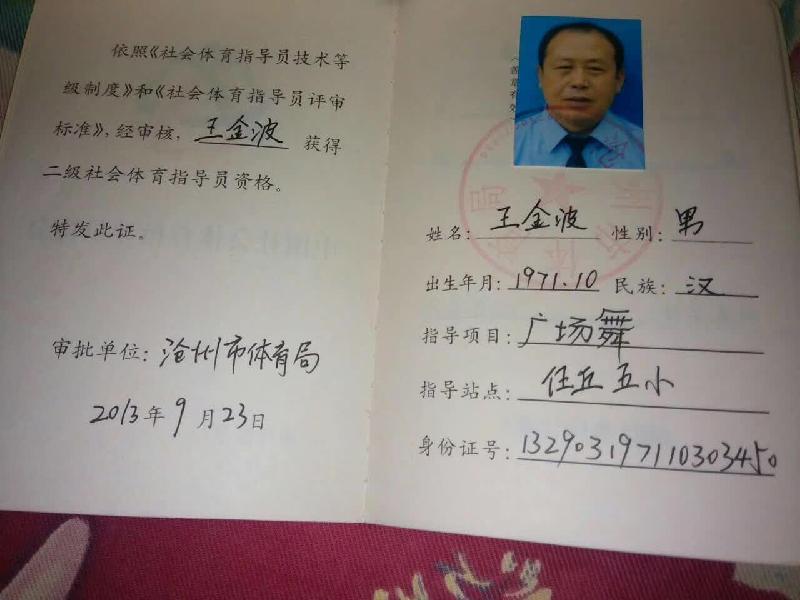 依照《社会体育指导员技术等
级制度》和《社会体育指导员评审
标准》，经审核，王金波 获得
二级社会体育指导员资格。
特发此证。
审批单位：沧州市体育局
2013年9月23日
（盖章有效）
姓名：王金波 性别：男
出生年月：1971.10 民族：汉
指导项目：广场舞
指导站点：任丘五小
身份证号：132903197110303450